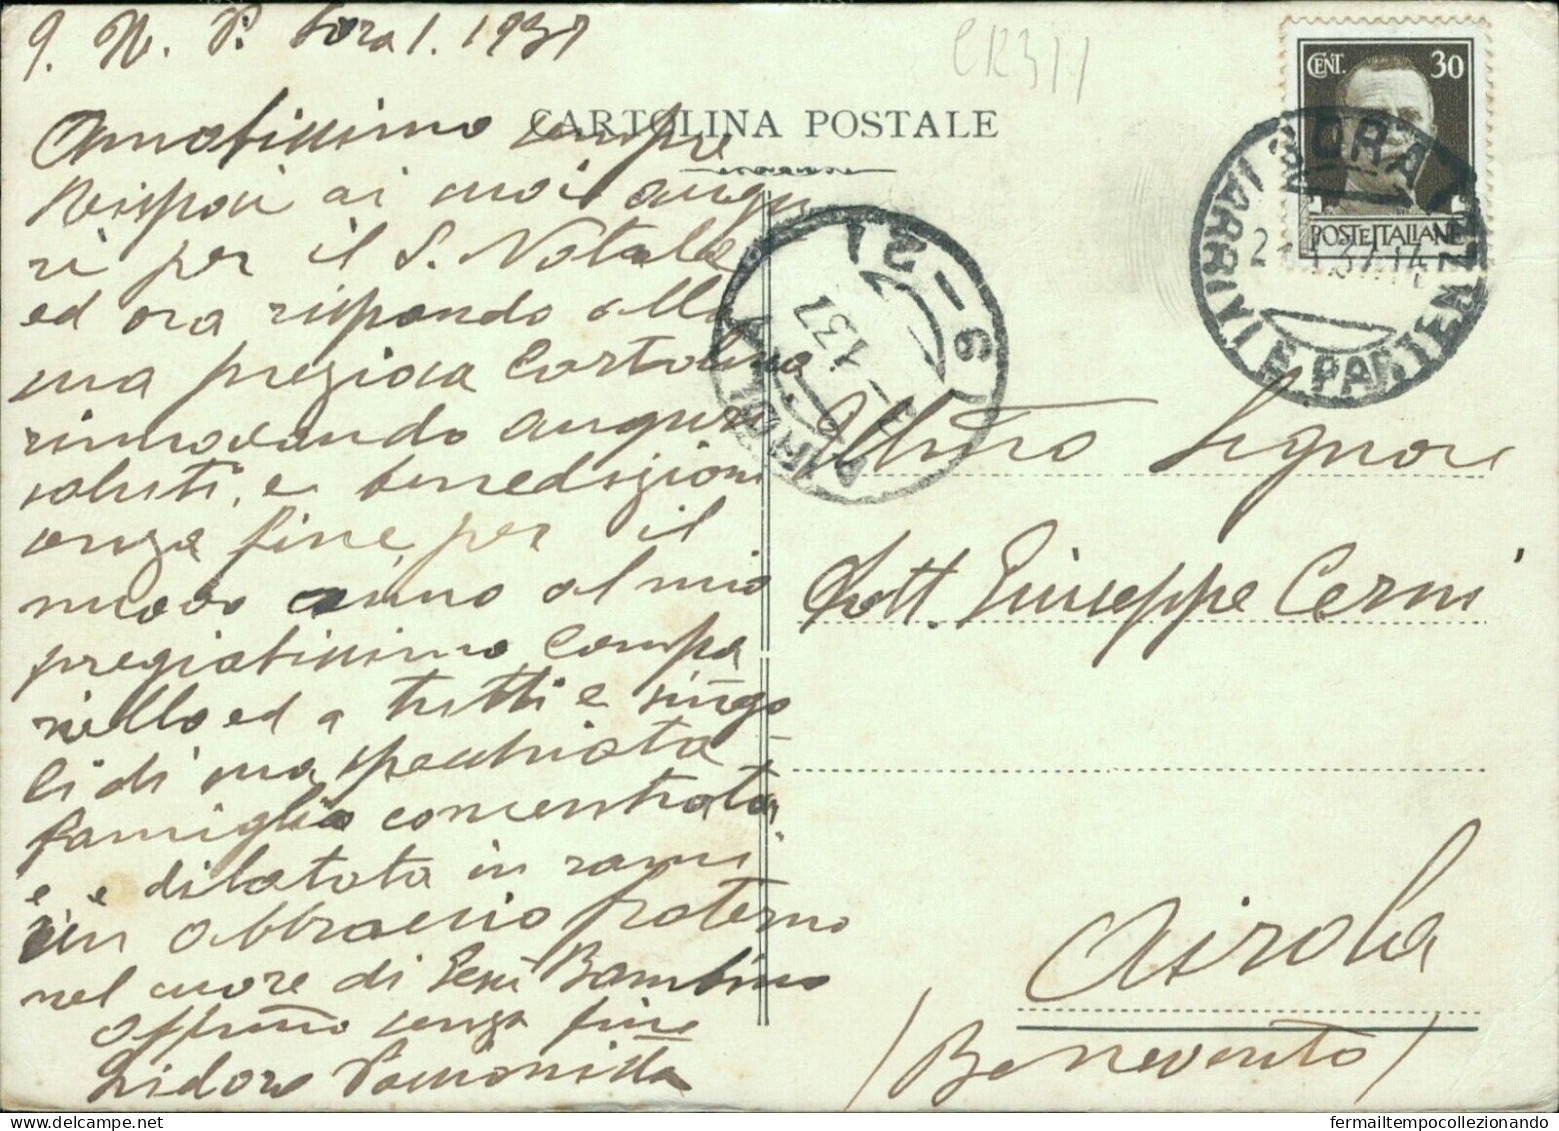 Sora 1. 1937
CR311
CARTOLINA POSTALE
Amatissimo sempre
Risposi ai suoi augu
ri per il S. Natale
ed ora rispondo alla
sua preziosa cartolina
rinnovando auguri
saluti, e benedizioni
senza fine, per il
nuovo anno al mio
pregiatissimo Compa
riello ed a tutti e singo
li di sua specchiata
famiglia concentrata
e dilatata in rami
un abbraccio fraterno
nel cuore di Gesù Bambino
affmo senza fine
Isidoro
CENT. 30
POSTE ITALIANE
SORA
ARRIVI E PARTENZE
AIROLA
6-21
1.37
Illmo Signore
Dott. Giuseppe Cerni
Airola
(Benevento)
fermailtempocollezionando